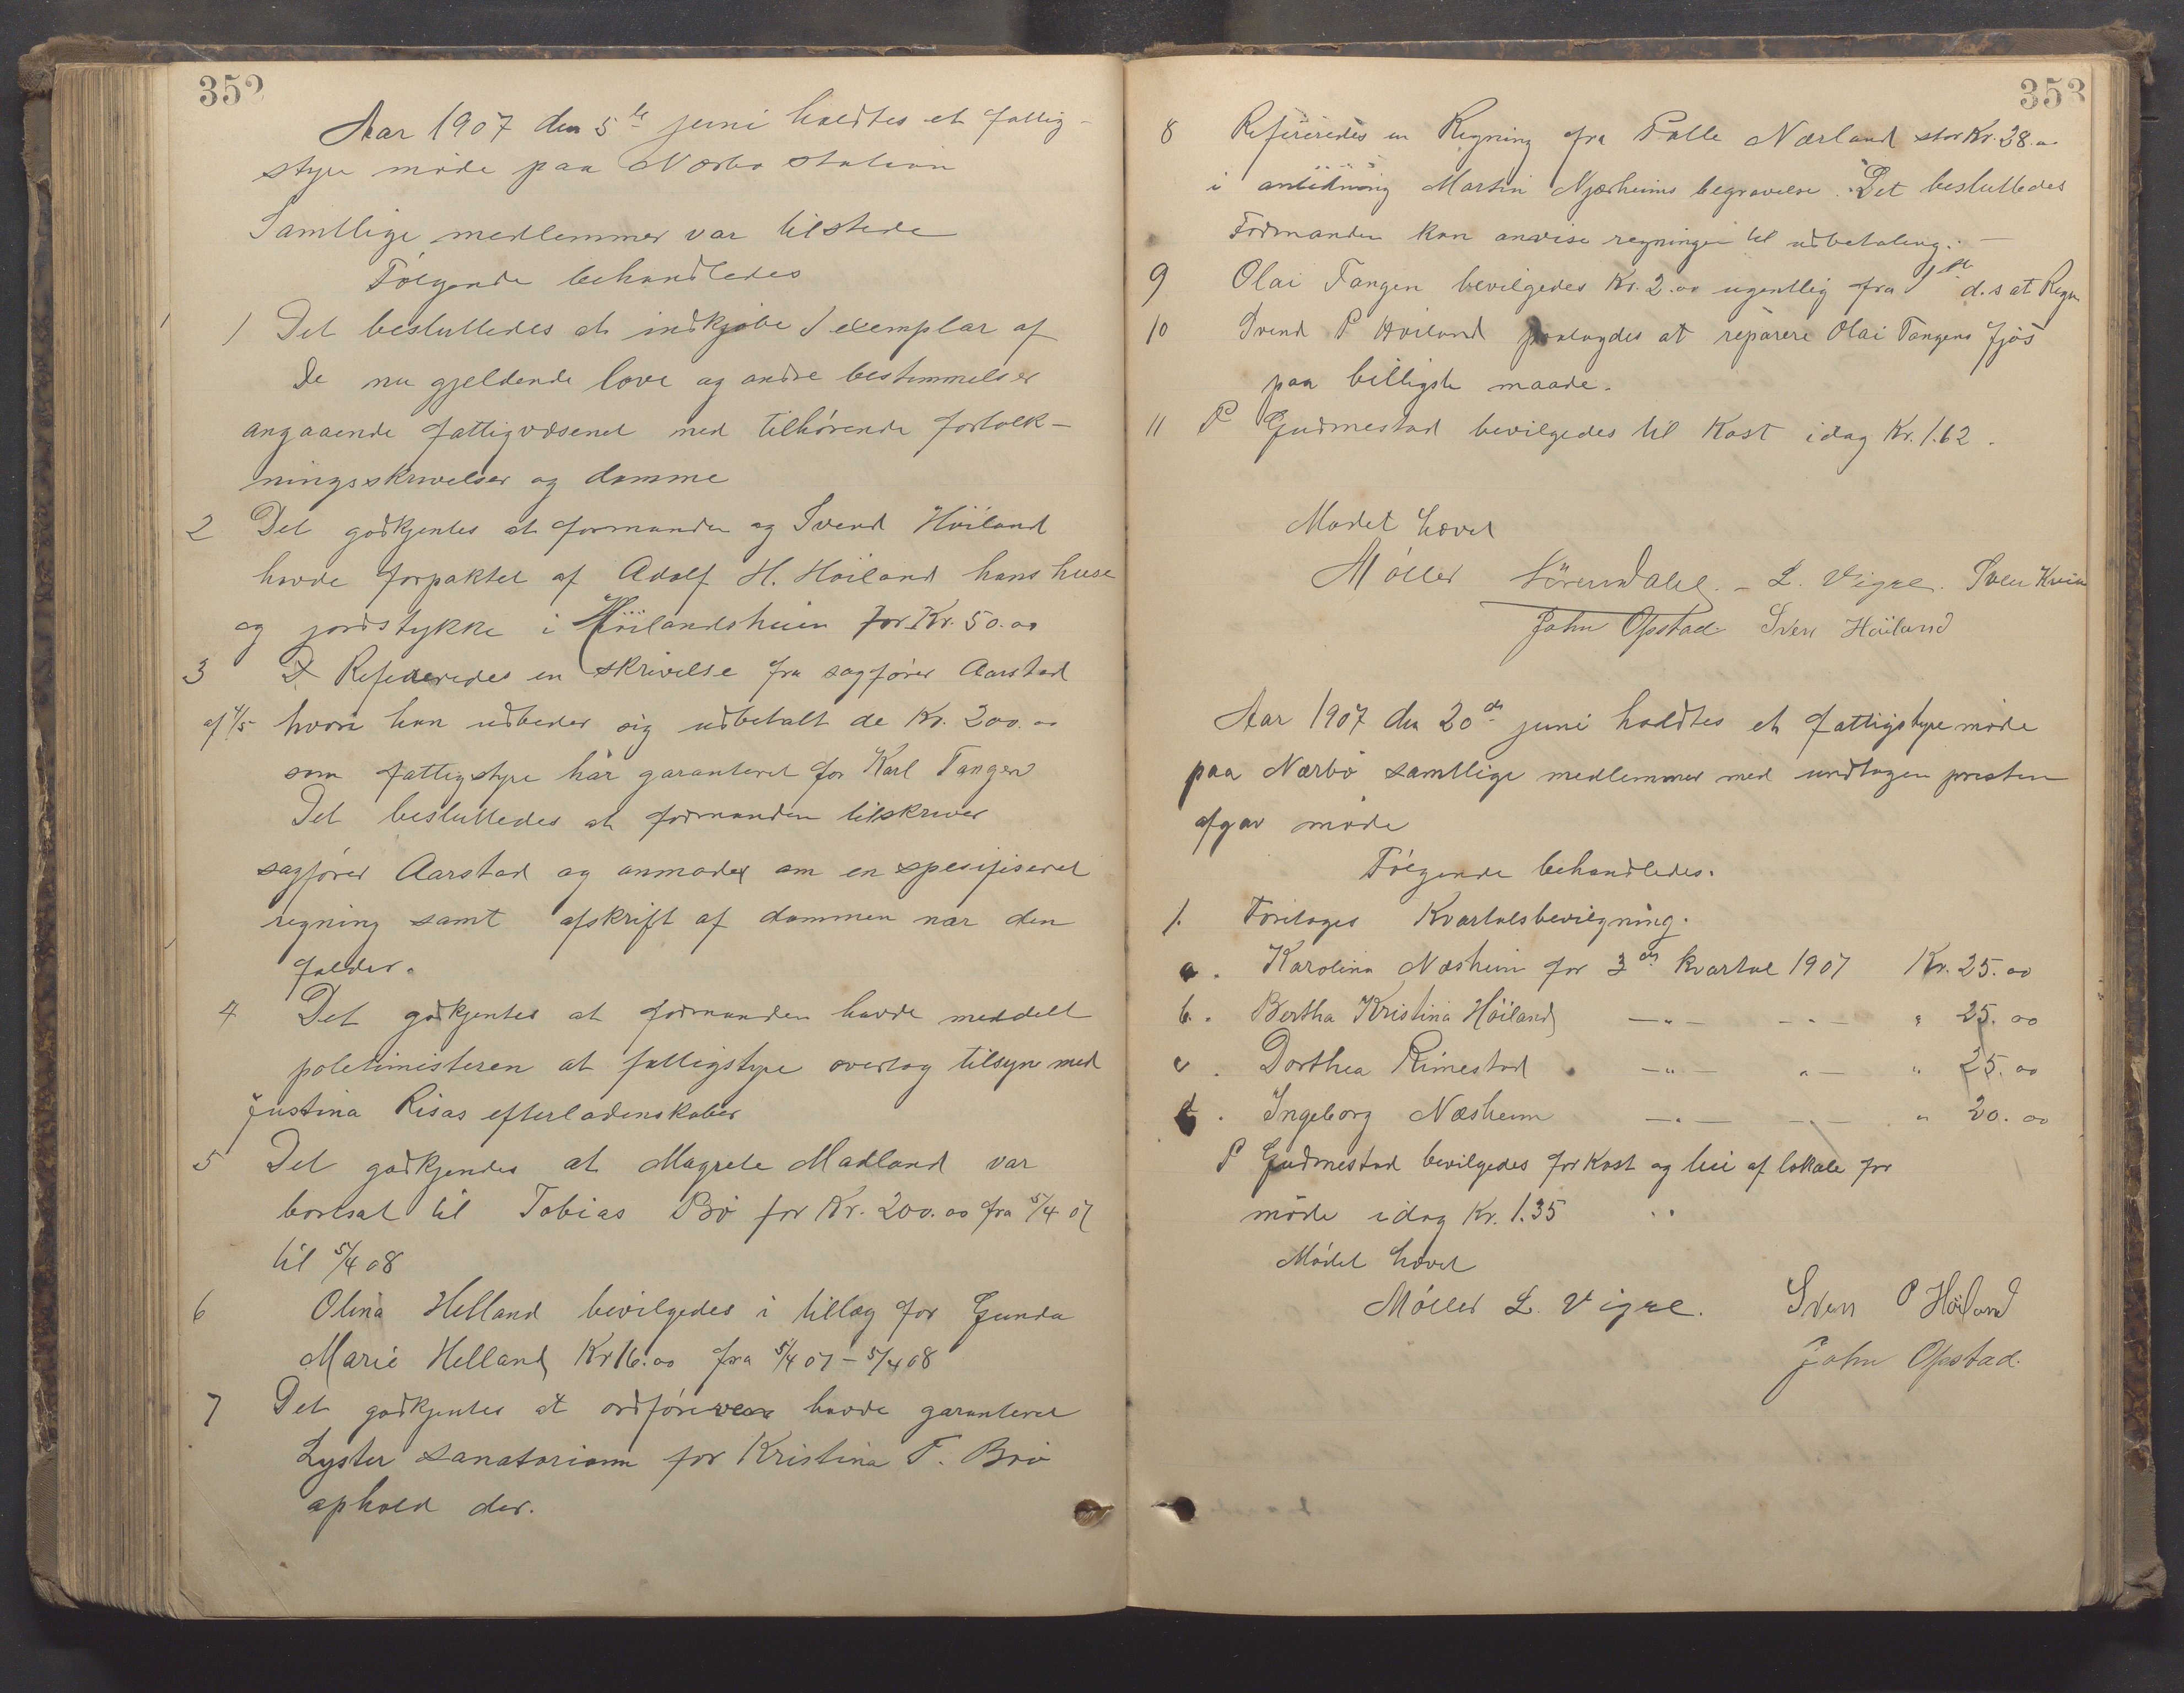 352
Aar 1907 den 5te juni holdtes et fattig-
styre møde paa Nærbø station
Samtlige medlemmer var tilstede
Følgende behandledes
1 Det besluttedes at indkjøbe 1 exemplar af
De nu gjeldende love og andre bestemmelser
angaaende fattigvæsenet med tilhørende fortolk-
ningsskrivelser og domme
2 Det godkjentes at formanden og Svend Höiland
havde forpaktet af Adolf H. Höiland hans huse
og jordstykke i Höilandsheien for Kr. 50.00
3 Refereredes en skrivelse fra sagfører Aarstad
af 4/5 hvori han udbeder sig udbetalt de Kr. 200.00
som fattigstyre här garanteret for Karl Tangen
Det besluttedes at formanden tilskriver
sagfører Aarstad og anmoder om en spesifiseret
regning samt afskrift af dommen nar den
falder.
4 Det godkjentes at formanden havde meddelt
politimisteren at fattigstyre overtog tilsyn med
Justina Risas efterladenskaber
5 Det godkjendes at Magrete Madland var
bortsat til Tobias Bø for Kr. 200.00 fra 5/4 07
til 5/4 08
6 Olina Helland bevilgedes i tillæg for Gunda
Marie Helland Kr 16.00 fra 5/4 07 - 5/4 08
7 Det godkjentes at ordføreren havde garanteret
Lyster sanatorium for Kristina T. Bø
ophold der.
353
8 Refereredes en Regning fra Palle Nærland stor Kr. 38.00
i anledning Martin Njærheims begravelse. Det besluttedes
Formanden kan anvise regningen til udbetaling. -
9 Olai Tangen bevilgedes Kr. 2.00 ugentlig fra 1ste d.s at Regne
10 Svend P Höiland paalagdes at reparere Olai Tangens fjøs
paa billigste maade.
11 P Gudmestad bevilgedes til Kost idag Kr. 1.62.
Mødet hævet
Møller Sörendahl. - L. Vigre. Sven Kvia
John Opstad Sven Höiland
Aar 1907 den 20de juni holdtes et fattigstyremøde
paa Nærbø samtlige medlemmer med undtagen presten
afgav møde
Følgende behandledes.
1. Foretages Kvartalsbevilgning.
a. Karolina Næsheim for 3de kvartal 1907 Kr. 25.00
b. Bertha Kristina Höiland -"- -"- " 25.00
c. Dorthea Rimestad -"- "- " 25.00
d. Ingeborg Næsheim -"- -"- " 20.00
P Gudmestad bevilgedes for Kost og leie af lokale for
møde idag Kr. 1.35
Mødet hævet
Møller L. Vigre. Sven P Höiland
John Opstad.